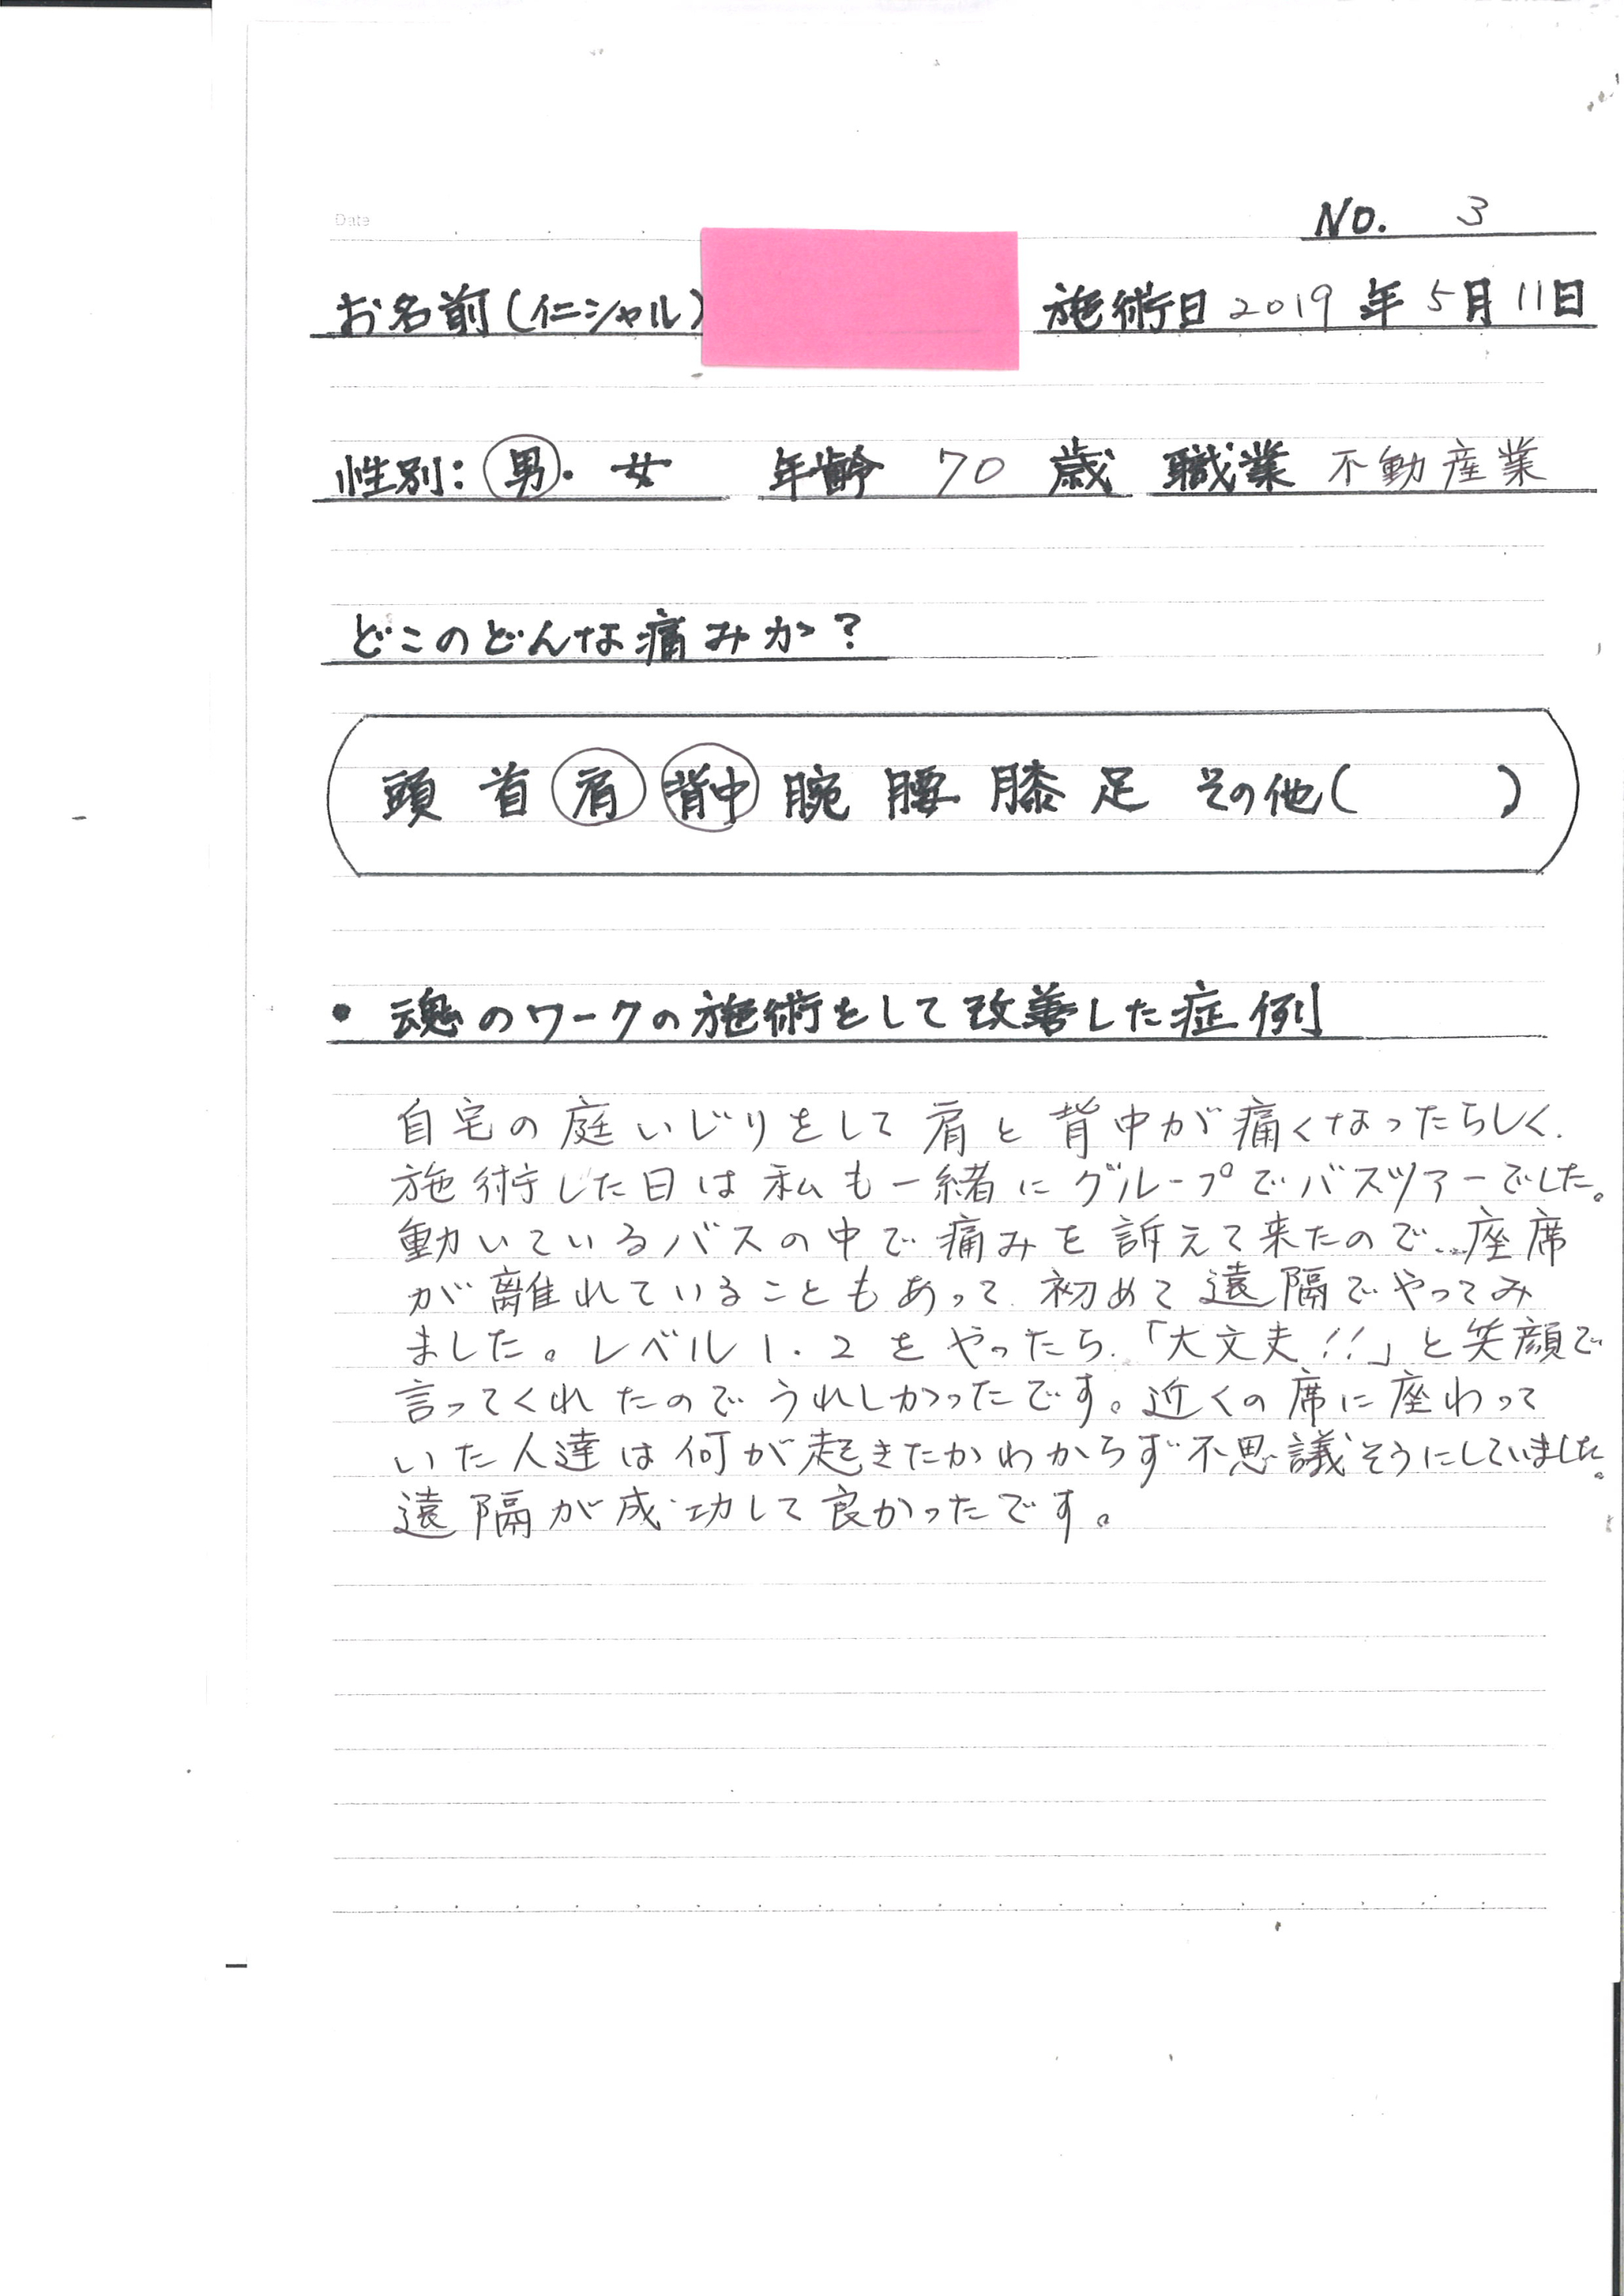 Date
NO. 3
お名前(イニシャル) 施術日 2019 年 5月 11日
性別: 男・女 年齢 70 歳 職業 不動産業
どこのどんな痛みか?
頭 首 肩 背中 腕 腰 膝 足 その他( )
• 魂のワークの施術をして改善した症例
自宅の庭いじりをして肩と背中が痛くなったらしく、
施術した日は私も一緒にグループでバスツアーでした。
動いているバスの中で痛みを訴えて来たので、座席
が離れていることもあって、初めて遠隔でやってみ
ました。レベル1.2をやったら、「大丈夫!!」と笑顔で
言ってくれたのでうれしかったです。近くの席に座わって
いた人達は何が起きたかわからず不思議そうにしていました。
遠隔が成功して良かったです。